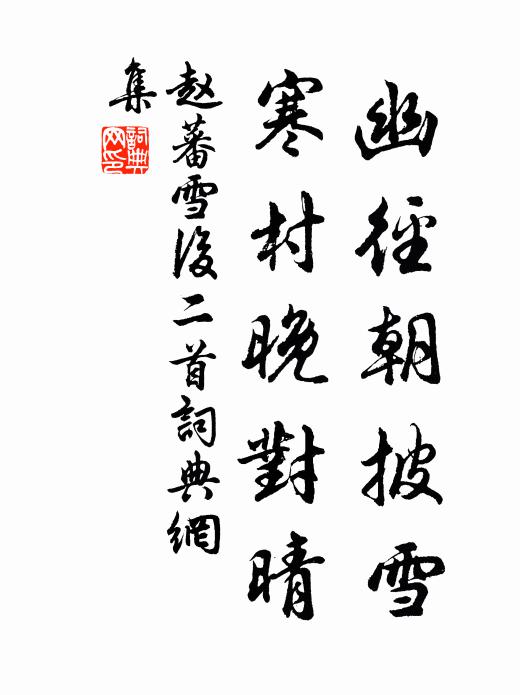 幽徑朝披雪
寒村晚對晴
赵蕃雪後二首詞典網
集
詞典網印